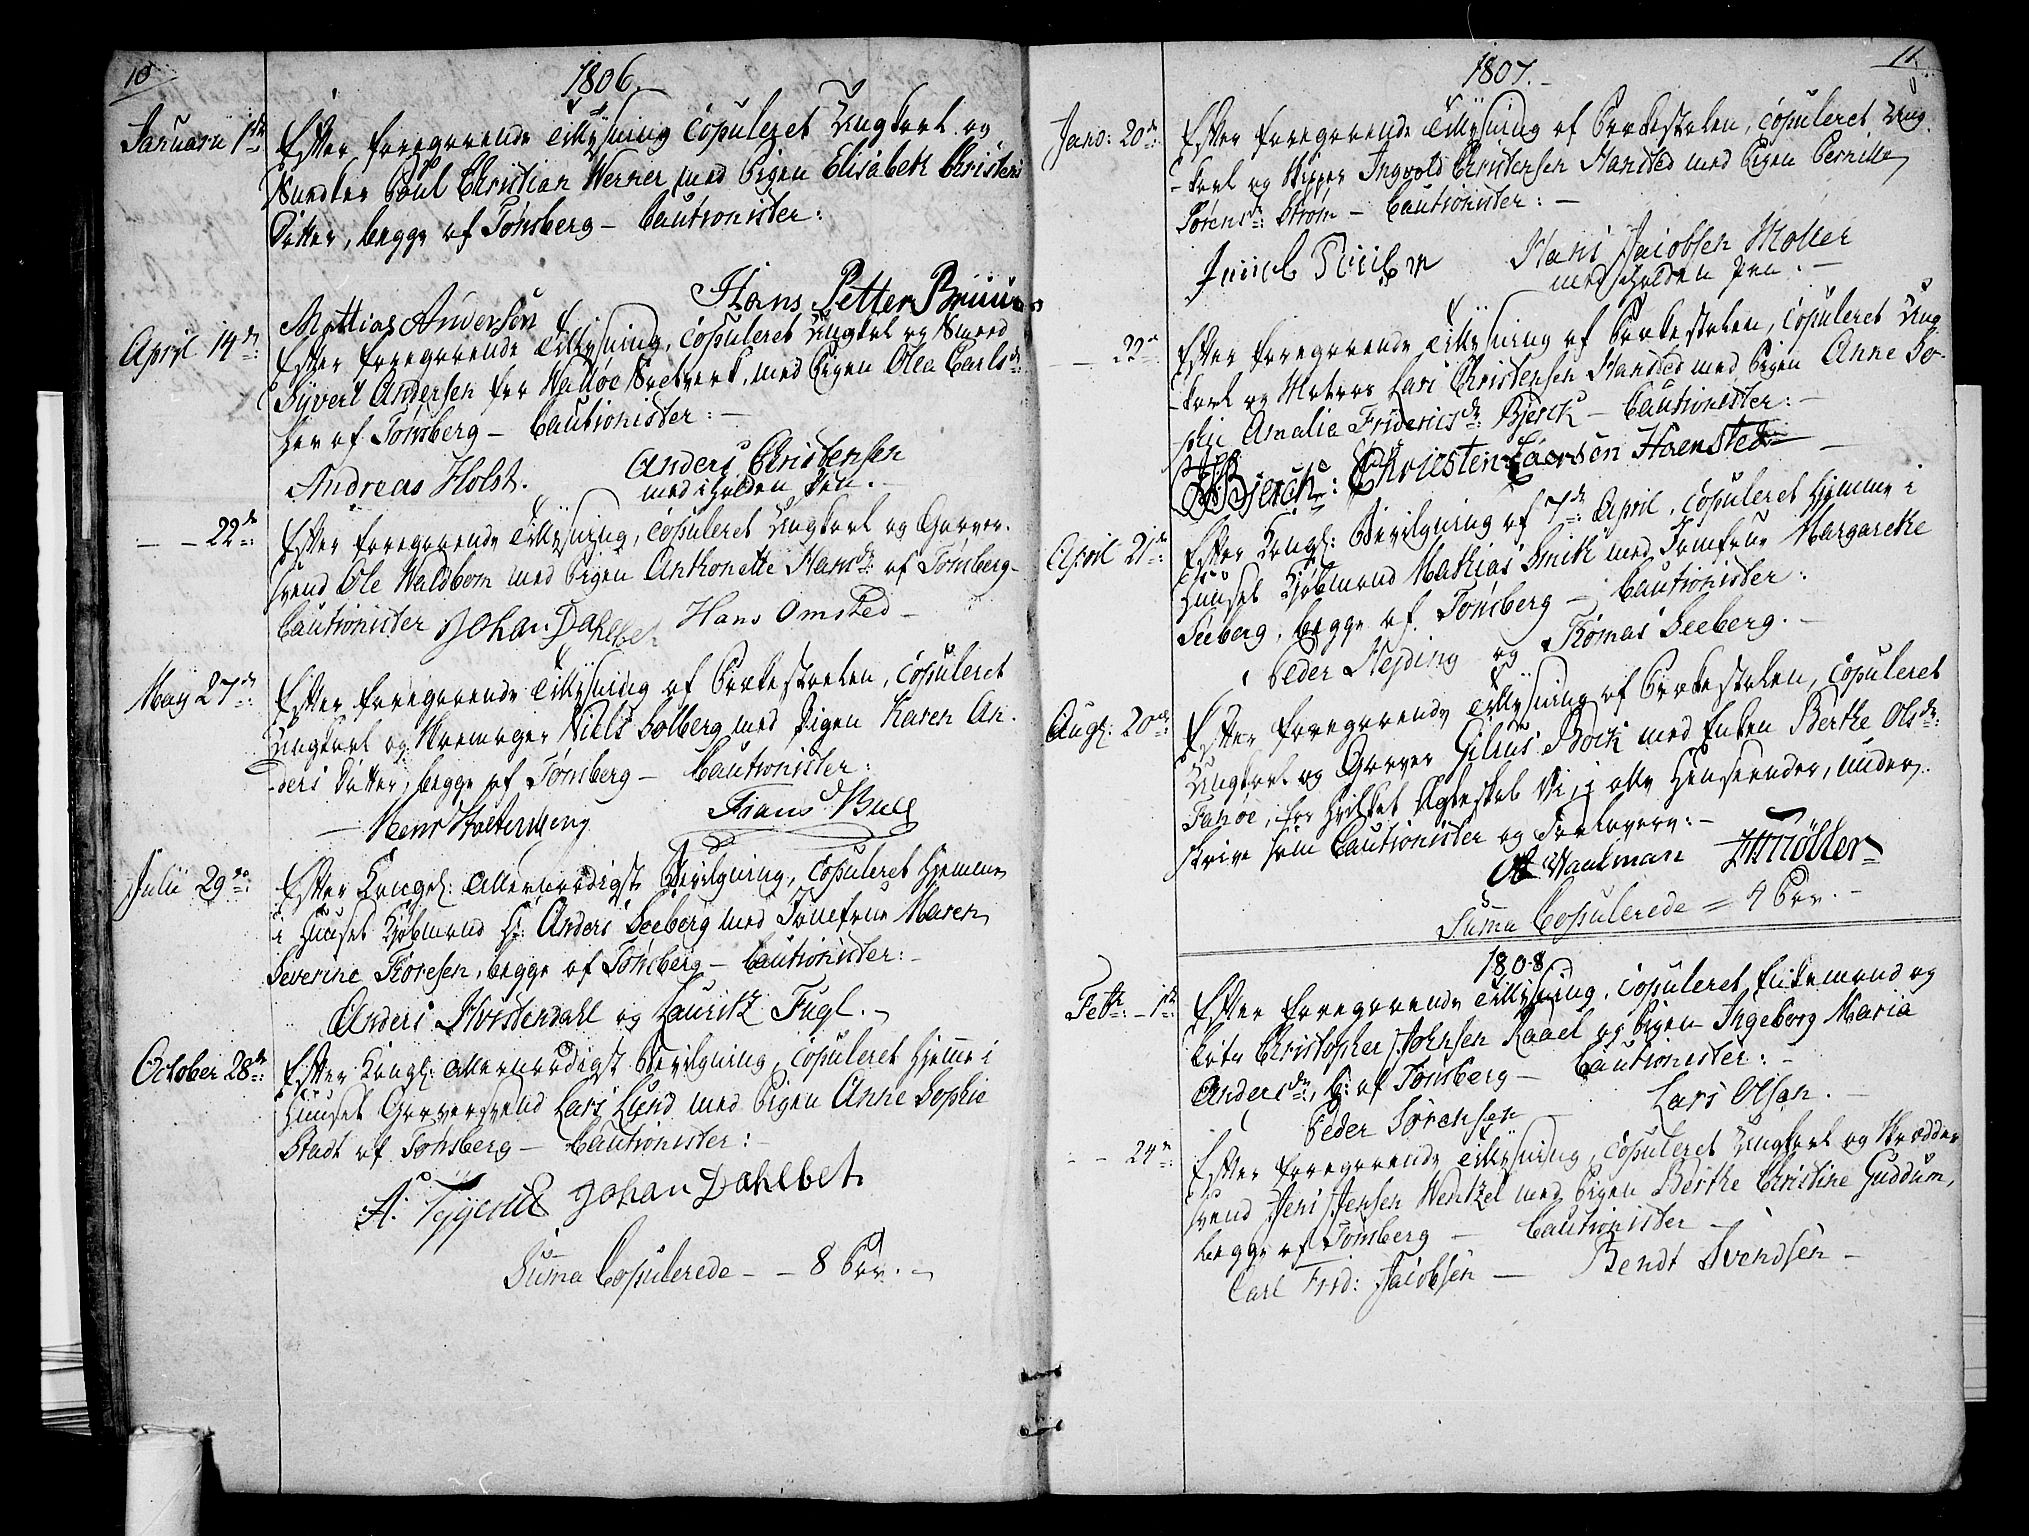 10
1806.
Januarii 1ste Efter foregaaende Tillysning Copuleret Ungkarl og
Snedker Poul Christian Werner med Pigen Elisabeth Christens
Datter, begge af Tønsberg – Cautionister:
Hans Petter Bruun
Mattias Andersøn
April 14de Efter foregaaende Tillysning, Copuleret Ungkarl og Smed
Syvert Andersen fra Walløe med Pigen Olea Carlsdr:
her af Tønsberg – Cautionister: –
Andreas Holst. Anders Christensen
med iholden Pen. –
– – 22de: Efter foregaaende Tillysning, Copuleret Ungkarl og Garver-
svend Ole Waldbom med Pigen Anthonette Hansdr: af Tønsberg –
Cautionister Johan Dahlbet Hans Omsted –
May 27de: Efter foregaaende Tillysning af Prækestoelen, Copuleret
Ungkarl og Skomager Niels Solberg med Pigen Karen An-
ders Datter, begge af Tønsberg – Cautionister:
Frans Bull
Julii 29de: Efter Kongel: Allernaadigst Bevilgning, Copuleret hjemme
i Huuset Kjøbmand Hr: Anders Seeberg med Jomfrue Maren
Severine Thoresen, begge af Tønsberg – Cautionister: –
Anders Hvistendahl og Lauritz Fugl. –
October 28de: Efter Kongl: Allernaadigst Bevilgning, Copuleret hjemme i
Huuset Garversvend Lars Lund med Pigen Anne Sophie
Stadt af Tønsberg – Cautionister: –
A: Johan Dahlbet
Suma Copulerede – – 8 Par. –
11.
1807. –
Janv: 20de: Efter foregaaende Tillysning af Prækestolen, Copuleret Ung-
-karl og Skipper Ingvold Christensen Hansted med Pigen Pernille
Sørensdr: Strøm – Cautionister: –
Hans Jacobsen Møller
med iholden Pen. –
– 22de Efter foregaaende Tillysning af Prækestolen, Copuleret Ung
-karl og Matros Lars Christensen Hansted med Pigen Anne So-
phie Amalia Fridericsdr: Bjerck – Cautionister: –
Bjerck: Christen Laersen Haensted
April 21de: Efter Kongl: Bevilgning af 7de April, Copuleret hjemme i
Huuset Kjøbmand Mathias Smith med Jomfrue Margarethe
Seeberg, begge af Tønsberg – Cautionister:
Peder Hejding og Thomas Seeberg. –
Augs: 20de: Efter foregaaende Tillysning af Prækestolen, Copuleret
Ungkarl og Garver Gileus Bock med Enken Berthe Olsdr:
Fanøe, for hvilket Ægteskab Vi, i alle Henseender, under-
skrive som Cautionister og Forlovere: –
Wautman Møller
Suma Copulerede = 4 Par. –
1808
Febr: – 1ste Efter foregaaende Tillysning, Copuleret Enkemand og
Christopher Johnsen Raael og Pigen Ingeborg Maria
Andersdr:, b: af Tønsberg – Cautionister: –
Peder Sørensen – Lars Olsen. –
– – 24de: Efter foregaaende Tillysning, Copuleret Ungkarl og Skrædder
svend Jens Jensen Wentzel med Pigen Berthe Christine Guddum,
begge af Tønsberg – Cautionister –
Carl Frid: Jacobsen – Bendt Svendsen –